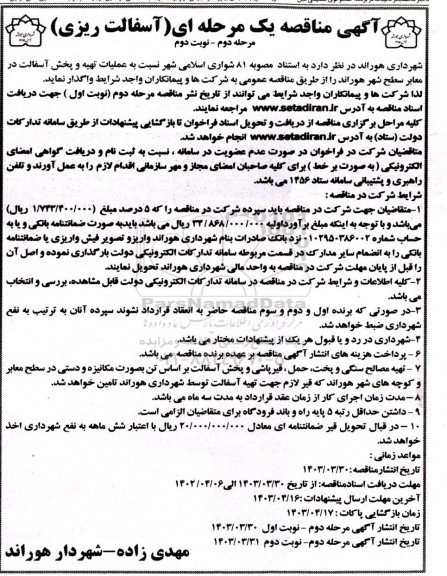 آگهی مناقصه یک مرحله ای(آسفالت ریزی)
مرحله دوم - نوبت دوم
شهرداری هوراند در نظر دارد به استناد مصوبه ۸۱ شواری اسلامی شهر نسبت به عملیات تهیه و پخش آسفالت در
معابر سطح شهر هوراند را از طریق مناقصه عمومی به شرکت ها و پیمانکاران واجد شرایط واگذار نماید.
لذا شرکت ها و پیمانکاران واجد شرایط می توانند از تاریخ نشر مناقصه مرحله دوم (نوبت اول) جهت دریافت
اسناد مناقصه به آدرس www.setadiran.ir مراجعه نمایند.
کلیه مراحل برگزاری مناقصه از دریافت و تحویل اسناد فراخوان تا بازگشایی پیشنهادات از طریق سامانه تدارکات
دولت (ستاد) به آدرس www.setadiran.ir انجام خواهد شد.
متاقضیان شرکت در فراخوان در صورت عدم عضویت در سامانه ، نسبت به ثبت نام و دریافت گواهی امضای
الکترونیکی (به صورت بر خط) برای کلیه صاحبان امضای مجاز و مهر سازمانی اقدام لازم را به عمل آورند و تلفن
راهبری و پشتیبانی سامانه ستاد ۱۴۵۶ می باشد.
شرایط شرکت در مناقصه :
۱-متقاضیان جهت شرکت در مناقصه باید سپرده شرکت در مناقصه را که ۵ درصد مبلغ (۱/۷۴۳/۴۰۰/۰۰۰ ریال)
می‌باشد و با توجه به اینکه مبلغ برآورداولیه ۳۴/۸۶۸/۰۰۰/۰۰۰ ریال می باشد بایدبه صورت ضمانتنامه بانکی و یا به
حساب شماره ۰۱۰۲۹۵۰۳۸۶۰۰۲ نزد بانک صادرات بنام شهرداری هوراند واریزو تصویر فیش واریزی یا ضمانتنامه
بانکی را به انضمام سایر مدارک در قسمت مربوطه سامانه تدارکات الکترونیکی دولت بارگذاری نموده و اصل آن
را قبل از پایان مهلت شرکت در مناقصه به واحد مالی شهرداری هوراند تحویل نمایند.
۲-کلیه اطلاعات و شرایط شرکت در مناقصه در سامانه تدارکات الکترونیکی دولت قابل مشاهده، بررسی و انتخاب
می باشد.
۳-در صورتی که برنده اول و دوم و سوم مناقصه حاضر به انعقاد قرارداد نشوند سپرده آنان به ترتیب به نفع
شهرداری ضبط خواهد شد.
۴-شهرداری در رد و یا قبول هر یک از پیشنهادات مختار می باشد.
۶- پرداخت هزینه های انتشار آگهی مناقصه بر عهده برنده مناقصه می باشد.
۷- تهیه مصالح سنگی و پخت، حمل، قیرپاشی و پخش آسفالت بر اساس تن بصورت مکانیزه و دستی در سطح معابر
و کوچه های شهر هوراند که قیر لازم جهت تهیه آسفالت توسط شهرداری هوراند تامین خواهد شد.
۸- مدت زمان اجرای کار از زمان عقد قرارداد به مدت سه ماه می باشد.
۹- داشتن حداقل رتبه ۵ پایه راه و باند فرودگاه برای متقاضیان الزامی است.
۱۰- در قبال تحویل قیر ضمانتنامه ای معادل ۲۰/۰۰۰/۰۰۰/۰۰۰ ریال با اعتبار شش ماهه به نفع شهرداری اخذ
خواهد شد.
مواعد زمانی :
تاریخ انتشار مناقصه: ۱۴۰۳/۰۳/۳۰
مهلت دریافت اسنادمناقصه: از تاریخ ۱۴۰۳/۰۳/۳۰ الی ۱۴۰۲/۰۴/۰۶
آخرین مهلت ارسال پیشنهادات :۱۴۰۳/۰۴/۱۶
زمان بازگشایی پاکات : ۱۴۰۳/۰۴/۱۷
تاریخ انتشار آگهی مرحله دوم - نوبت اول ۱۴۰۳/۰۳/۳۰
تاریخ انتشار آگهی مرحله دوم- نوبت دوم ۱۴۰۳/۰۳/۳۱
مهدی زاده-شهردار هوراند